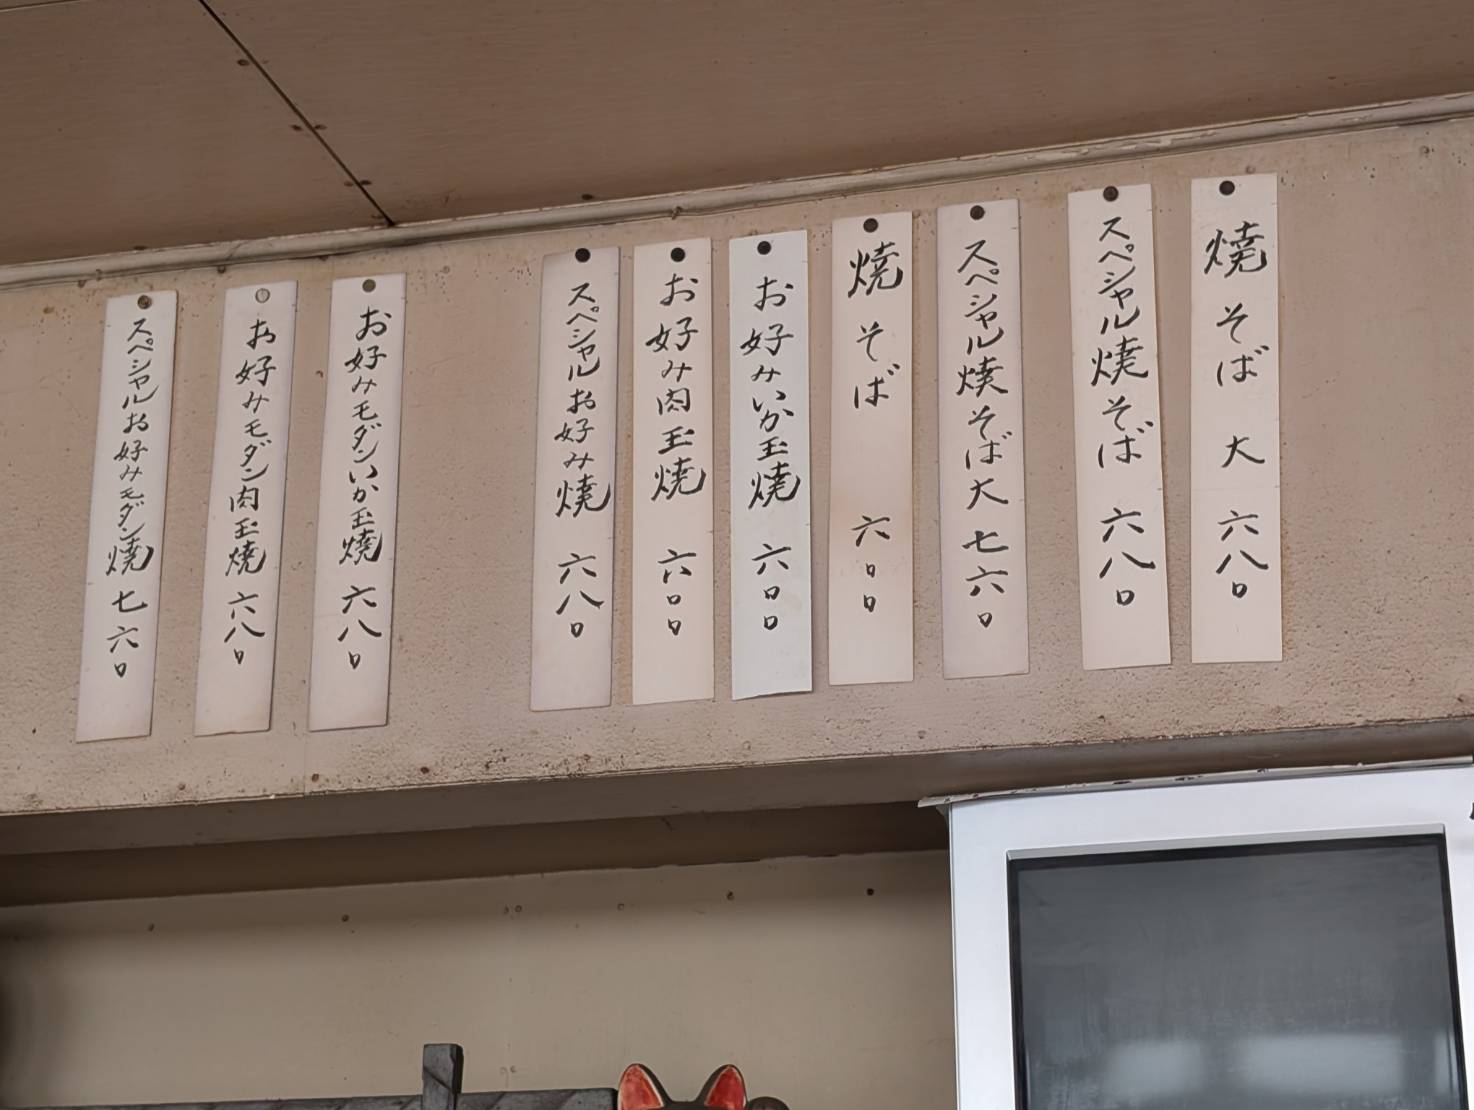 焼そば 大 六八〇
スペシャル焼そば 六八〇
スペシャル焼そば大 七六〇
焼そば 六〇〇
お好みいか玉焼 六〇〇
お好み肉玉焼 六〇〇
スペシャルお好み焼 六八〇
お好みモダンいか玉焼 六八〇
お好みモダン肉玉焼 六八〇
スペシャルお好みモダン焼 七六〇